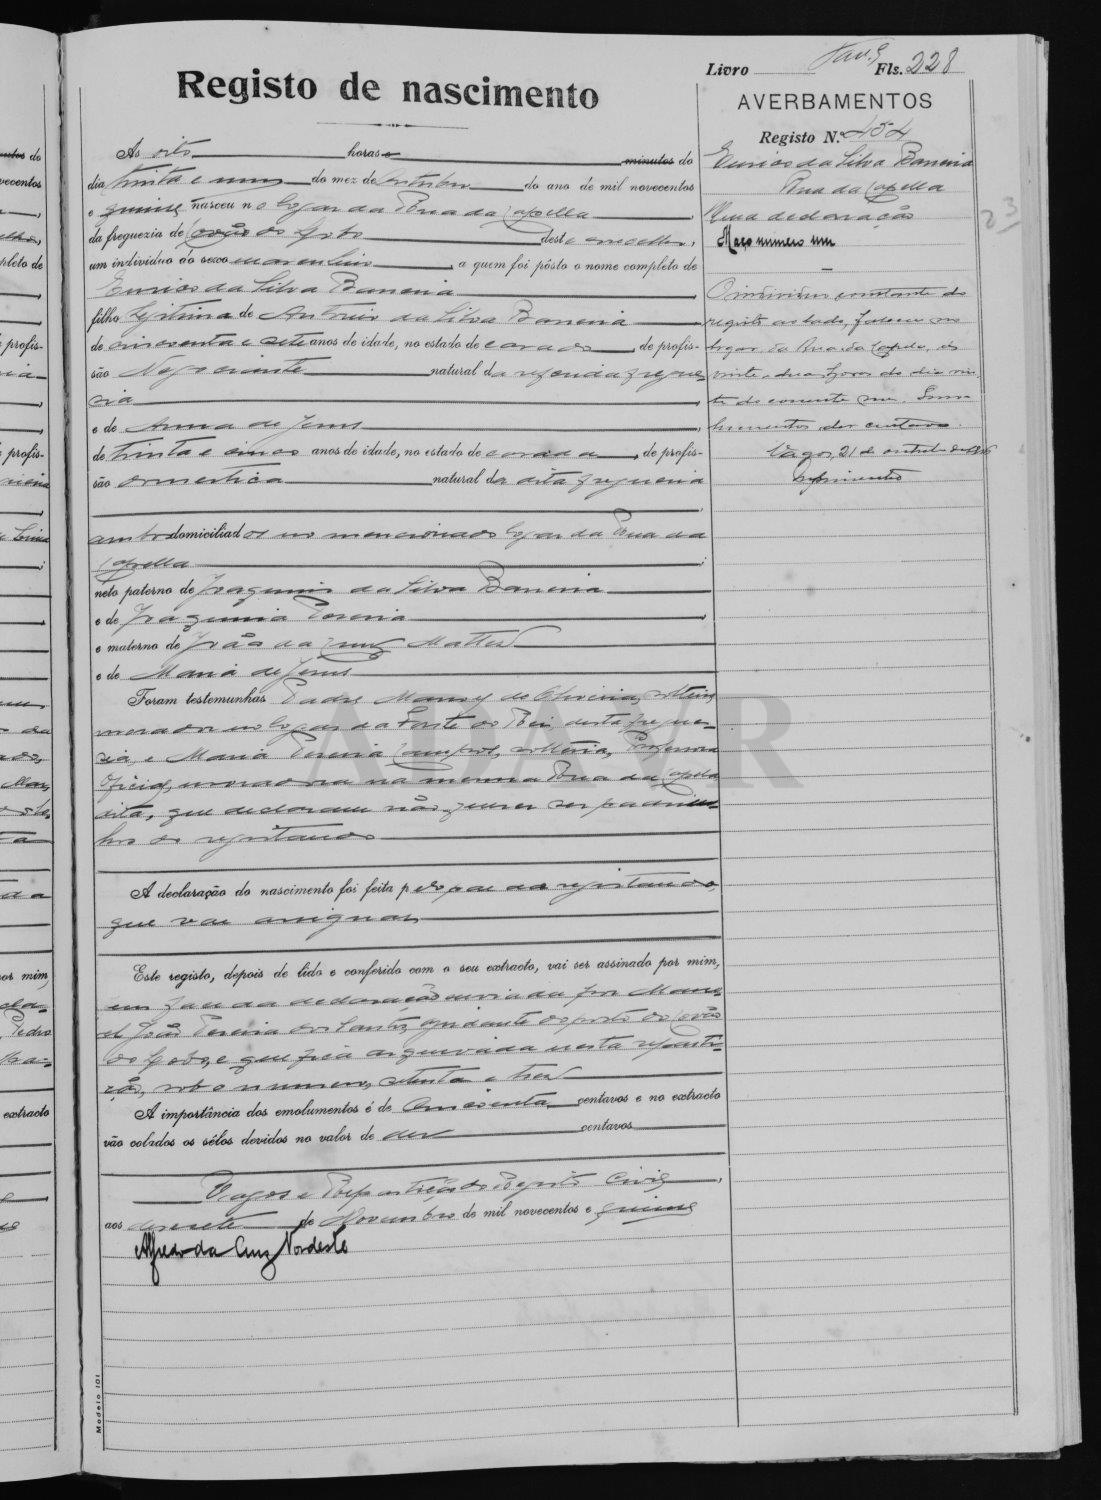 Livro Fls. 228
Registo de nascimento
AVERBAMENTOS
Registo N.º 454
Eurico da Silva Barreira
Rua da Capella
Uma declaração
Maço número um
O individuo constante do
registo ao lado, faleceu no
logar da Rua da Capela, ás
vinte e duas horas do dia vin-
te do corrente mez. Emo-
lumentos dez centavos.
Vagos, 21 de outubro de 1916
Nascimento
As oito horas e minutos do
dia trinta e um do mez de Outubro do ano de mil novecentos
e quinze nasceu no logar da Rua da Capella,
da freguezia de Covão do Lobo deste concelho,
um individuo do sexo masculino, a quem foi pôsto o nome completo de
Eurico da Silva Barreira
filho legitimo de Antonio da Silva Barreira
de cincoenta e sete anos de idade, no estado de casado, de profis-
são Negociante natural da referida fregue-
sia
e de Anna de Jesus,
de trinta e cinco anos de idade, no estado de casada, de profis-
são domestica natural da dita freguesia
ambos domiciliados no mencionado logar da Rua da
Capella;
neto paterno de Joaquim da Silva Barreira
e de Joaquina Pereira,
e materno de João da Cruz Mattos
e de Maria de Jesus
Foram testemunhas Padre Manoel de Oliveira, solteiro,
morador no logar da Fonte do Rei, desta fregue-
sia, e Maria Pereira Campos, solteira, Professora
Oficial, moradora na mesma Rua da Capela
dita, que declararam não querer ser padrin-
hos do registando
A declaração do nascimento foi feita pelo pae do registando
que vae assignar
Este registo, depois de lido e conferido com o seu extracto, vai ser assinado por mim,
em face da declaração enviada por Mano-
el João Pereira dos Santos, ajudante do posto do Covão
do Lobo, e que fica arquivada nesta reparti-
ção, sob o numero, setenta e tres
A importância dos emolumentos é de cincoenta centavos e no extracto
vão colados os sêlos devidos no valor de dez centavos
Vagos e Repartição do Registo Civil,
aos dezesete de Novembro de mil novecentos e quinze
Alfredo da Cruz Nordeste
Modelo 101
ADAVR